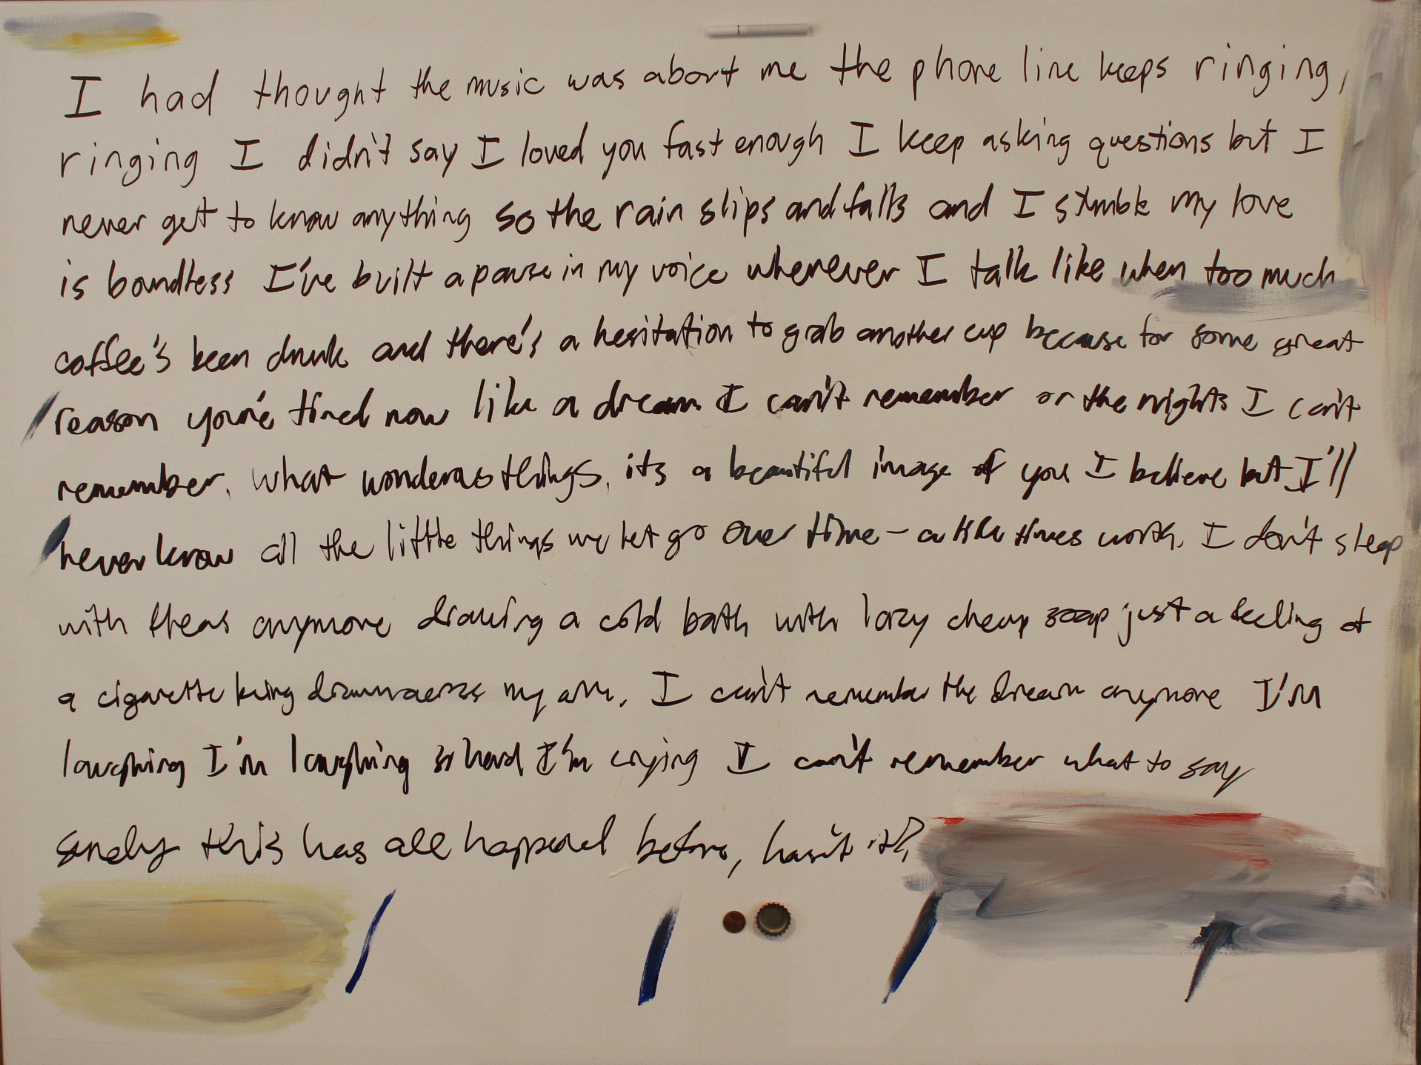 I had thought the music was about me the phone line keeps ringing,
ringing I didn't say I loved you fast enough I keep asking questions but I
never get to know anything so the rain slips and falls and I stumble my love
is boundless I've built a pause in my voice whenever I talk like when too much
coffee's been drunk and there's a hesitation to grab another cup because for some great
reason you're tired now like a dream I can't remember or the nights I can't
remember. what wonderous things. its a beautiful image of you I believe but I'll
never know all the little things we let go over time - a times worth. I don't sleep
with anymore drawing a cold bath with lazy cheap soap just a feeling of
a cigarette being drawn across my arm. I can't remember the dream anymore I'm
laughing I'm laughing so hard I'm crying I can't remember what to say
surely this has all happened before, hasn't it?